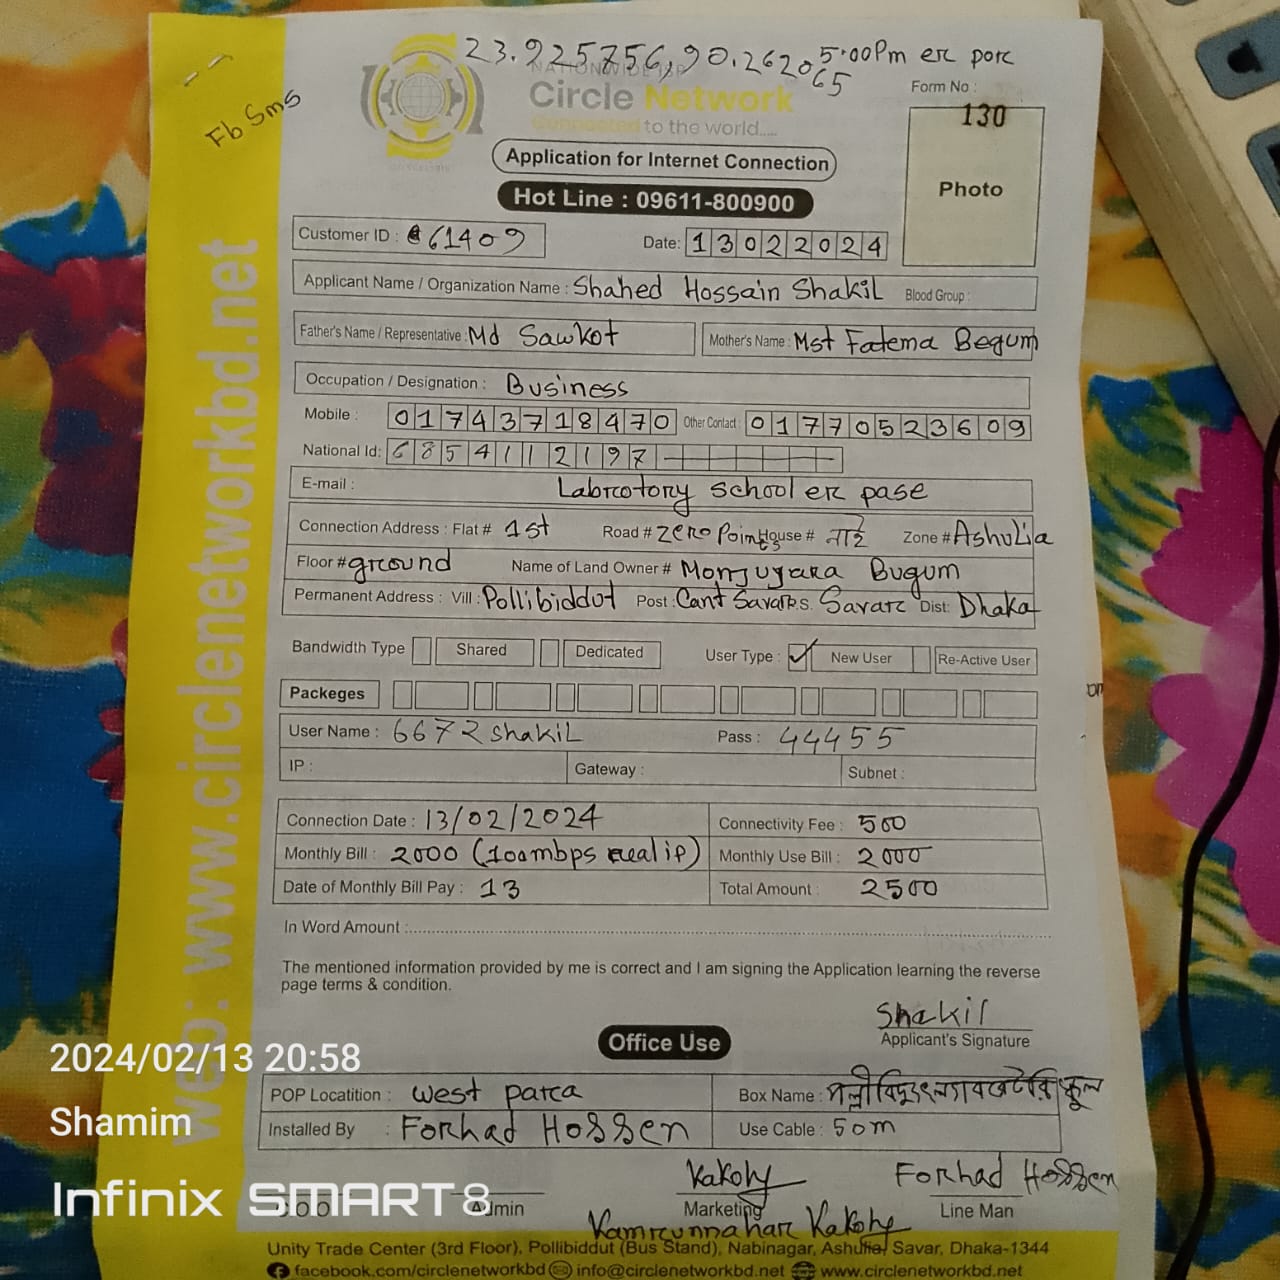 23.925756,90.262065
5:00Pm er por
Fb Sms
NATIONWIDE ISP
Circle Network
Connected to the world.....
Form No :
130
Photo
Application for Internet Connection
Hot Line : 09611-800900
Customer ID : 61409
Date: 13022024
Applicant Name / Organization Name : Shahed Hossain Shakil Blood Group :
Father's Name / Representative : Md Sawkot Mother's Name : Mst Fatema Begum
Occupation / Designation : Business
Mobile : 01743718470 Other Contact 01770523609
National Id: 6854112197
E-mail :
Labrotory school er pase
Connection Address : Flat # 1st Road # Zero Point House # নাই Zone # Ashulia
Floor # ground Name of Land Owner # Monjuyara Bugum
Permanent Address : Vill : Pollibiddut Post : Cant Savar P.S. Savar Dist: Dhaka
Bandwidth Type Shared Dedicated User Type : ✓ New User Re-Active User
Packeges
User Name : 6672shakil Pass : 44455
IP : Gateway : Subnet :
Connection Date : 13/02/2024 Connectivity Fee : 500
Monthly Bill : 2000 (100mbps real ip) Monthly Use Bill : 2000
Date of Monthly Bill Pay : 13 Total Amount : 2500
In Word Amount :
The mentioned information provided by me is correct and I am signing the Application learning the reverse
page terms & condition.
Shakil
Applicant's Signature
Office Use
POP Locatition : West para Box Name : পল্লীবিদ্যুৎ ল্যাবরেটরি স্কুল
Installed By : Forhad Hossen Use Cable : 50m
Kakoly Forhad Hossen
Admin Marketing Line Man
Kamrunnahar Kakoly
Unity Trade Center (3rd Floor), Pollibiddut (Bus Stand), Nabinagar, Ashulia, Savar, Dhaka-1344
facebook.com/circlenetworkbd info@circlenetworkbd.net www.circlenetworkbd.net
web: www.circlenetworkbd.net
2024/02/13 20:58
Shamim
Infinix SMART 8